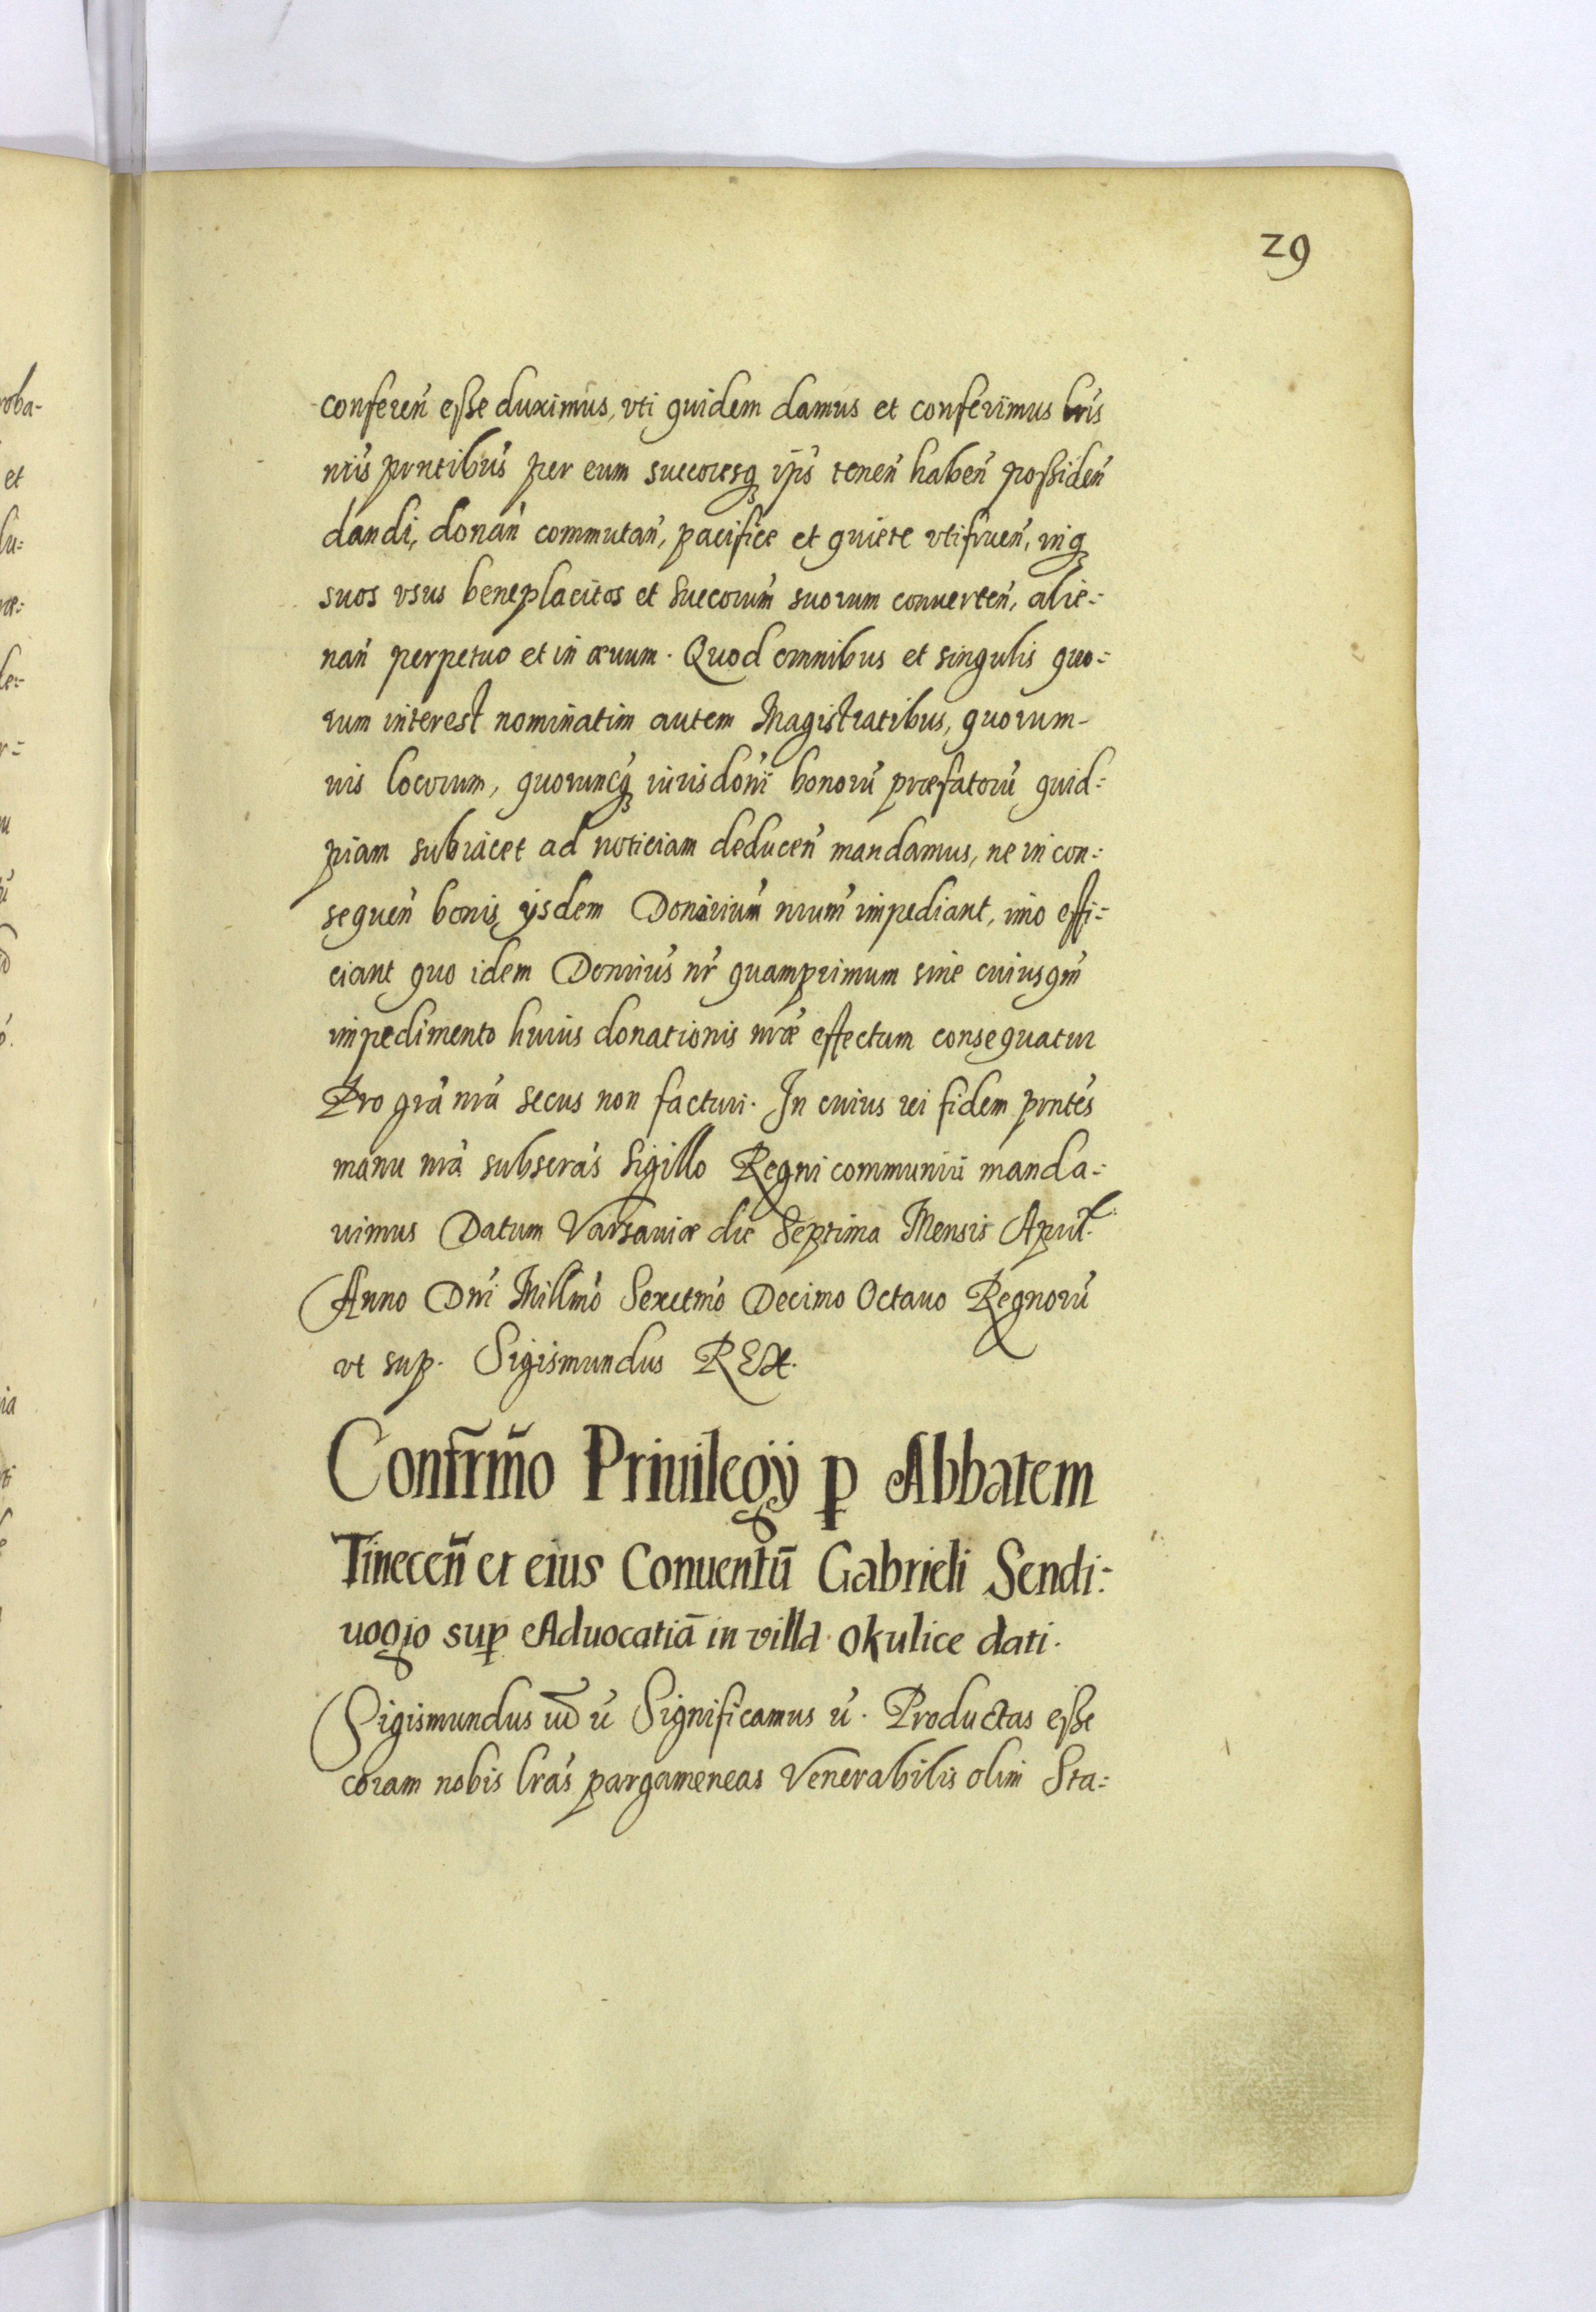 29
conferen̄ esse duximus, vti quidem damus et conferimus lr̄is
nr̄is pn̄tibus per eum succoresq̧ ip̄s tenen̄ haben̄ possiden̄
dandi, donan̄ commutan̄, pacifice et quiete vtifruen̄, inq̧
suos vsus beneplacitos et succorum̄ suorum conuerten̄, alie-
nan̄ perpetuo et in æuum. Quod omnibus et singulis quo-
rum interest nominatim autem Magistratibus, quorum-
uis locorum, quoruncq̧ iurisdōni bonorū præfatorū quid-
piam subiacet ad noticiam deducen̄ mandamus, ne in con-
sequen̄ bonis ijsdem nr̄um̄ impediant, imo effi-
ciant quo idem nr̄ quamprimum sine cuiusqm̄
impedimento huius donationis nr̄æ effectum consequatur
Pro grā nr̄a secus non facturi. In cuius rei fidem pn̄tes
manu nr̄a subscras̄ Sigillo Regni communiri manda-
uimus Datum Varsauiæ die Septima Mensis April:
Anno Dn̄i Millmō Sexctmō Decimo Octauo Regnorū
vt sup. Sigismundus REX.
Confrm̄o Priuilegÿ p Abbatem
Tinecen̄ et eius Conuentū Gabrieli Sendi:
uogio sup Aduocatiā in villa Okulice dati.
Sigismundus Significamus ū. Productas esse
coram nobis lrās pargameneas Venerabilis olim Sta-